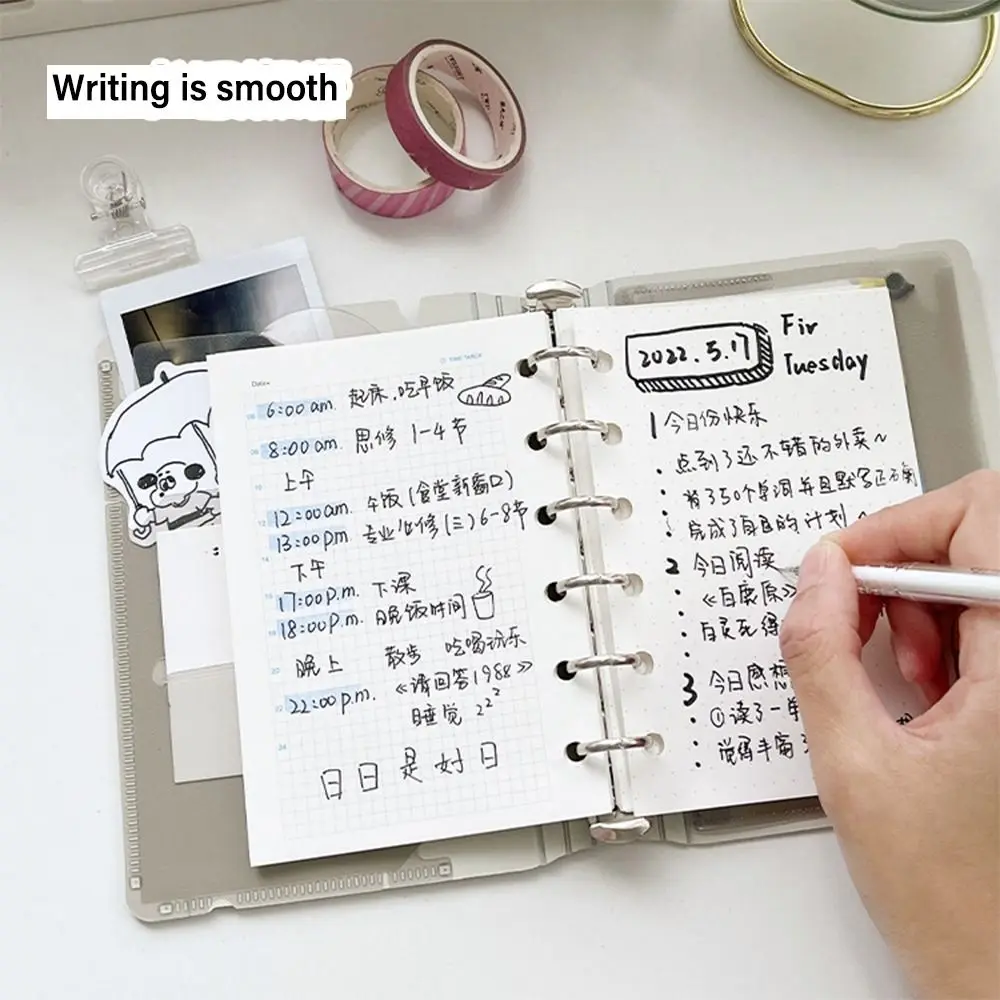 Writing is smooth
TIME TABLE
Date
6:00 am. 起床，吃早饭
8:00 am. 思修 1-4节
上午
12:00am. 午饭（食堂新窗口）
13:00pm. 专业必修（三）6-8节
下午
17:00p.m. 下课
18:00p.m. 晚饭时间
晚上 散步 吃喝玩乐
22:00p.m. 《请回答1988》
睡觉 zzz
日日是好日
2022.5.17
Fir
Tuesday
1 今日份快乐
· 点到了还不错的外卖~
· 背了50个单词并且默写正
· 完成了自己的计划~
2 今日阅读
· 《白鹿原》
· 白灵死得
3 今日感想
· ①读了一
· 觉得丰富